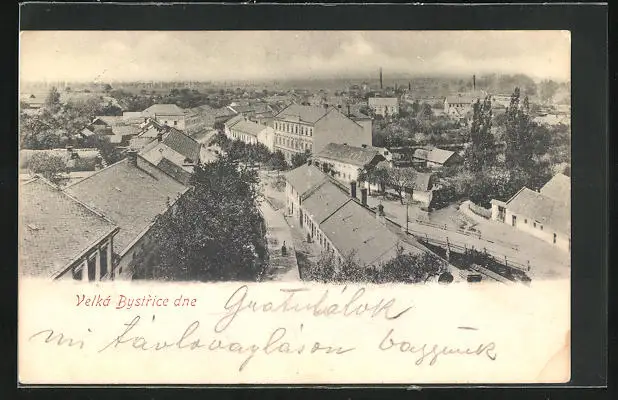 Velká Bystřice dne Gratulálok
mi távlovagláson vagyunk